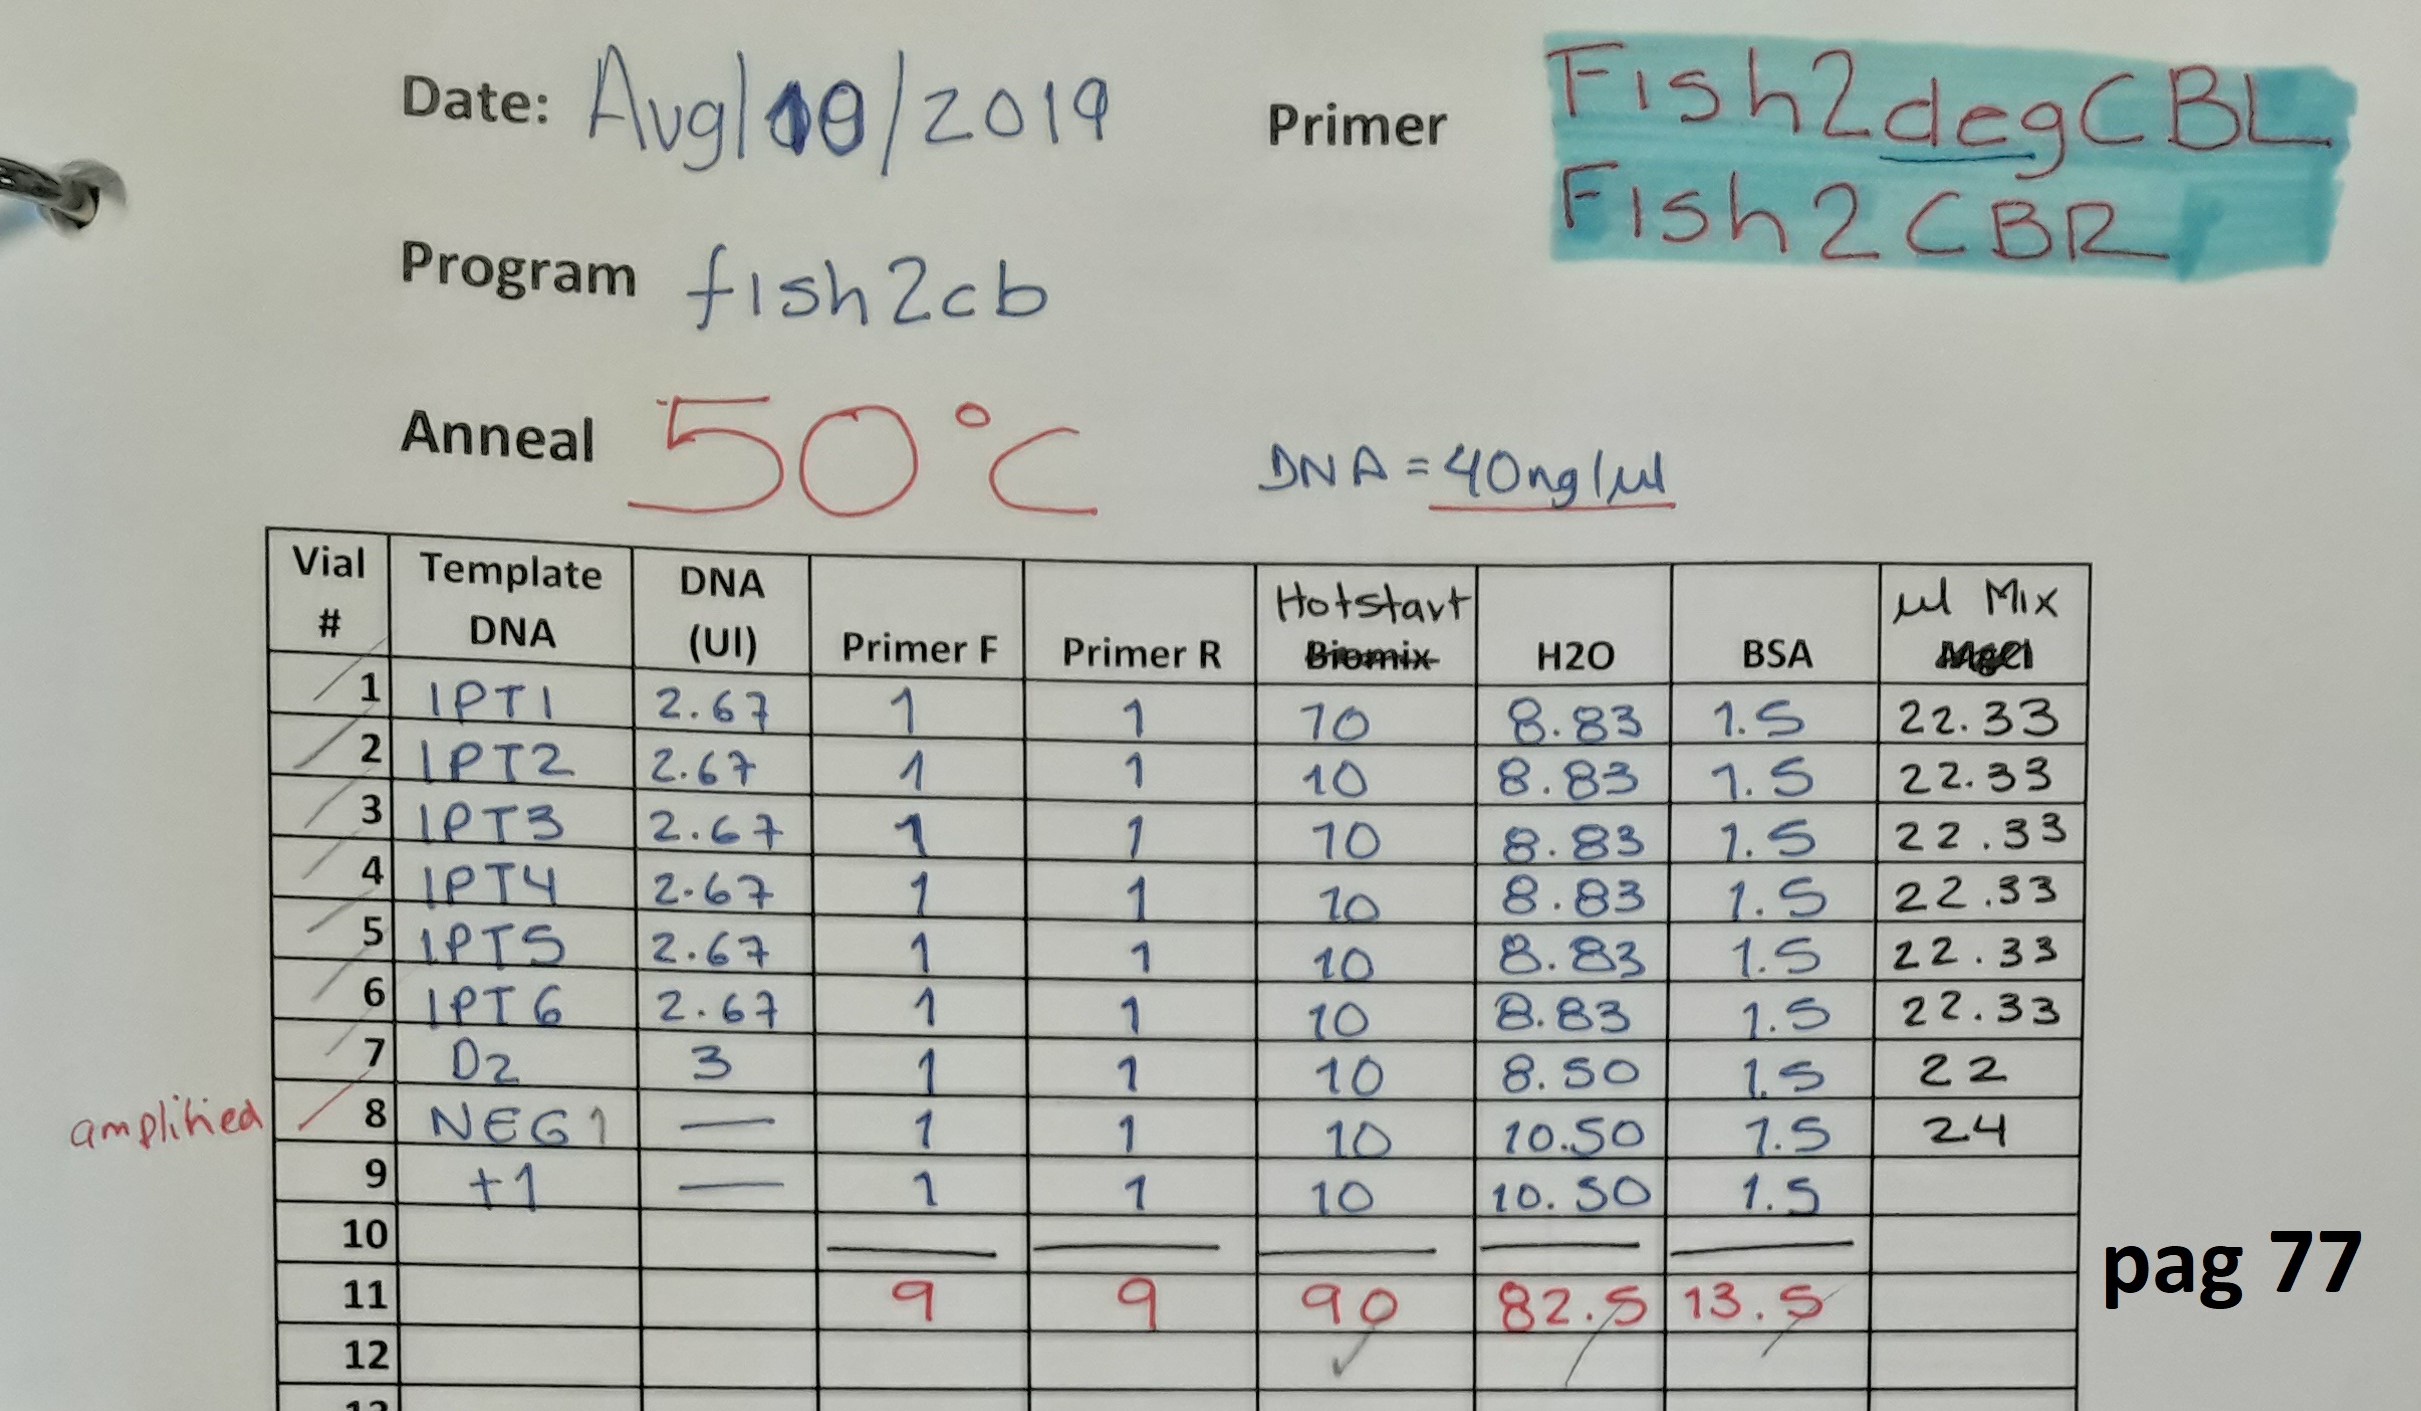 Date: Aug/10/2019
Primer Fish2degCBL
Fish2CBR
Program fish2cb
Anneal 50°C
DNA = 40ng/µl
Vial # Template DNA DNA (Ul) Primer F Primer R Hotstart Biomix H2O BSA µl Mix MgCl
1 IPT1 2.67 1 1 10 8.83 1.5 22.33
2 IPT2 2.67 1 1 10 8.83 1.5 22.33
3 IPT3 2.67 1 1 10 8.83 1.5 22.33
4 IPT4 2.67 1 1 10 8.83 1.5 22.33
5 IPT5 2.67 1 1 10 8.83 1.5 22.33
6 IPT6 2.67 1 1 10 8.83 1.5 22.33
7 D2 3 1 1 10 8.50 1.5 22
amplified 8 NEG1 — 1 1 10 10.50 1.5 24
9 +1 — 1 1 10 10.50 1.5
10
11 9 9 90 82.5 13.5
12
13
pag 77